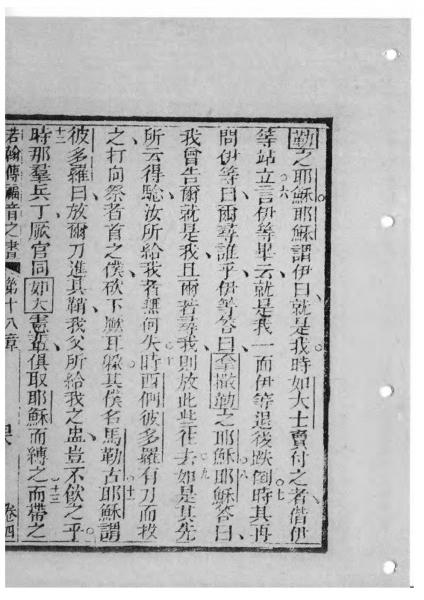 勒之耶穌耶穌謂伊曰就是我時如大士賣付之者偕伊
等站立六言伊等畢云就是我一面伊等退後跌倒七時其再
問伊等曰爾尋誰乎伊等答曰拿撒勒之耶穌八耶穌答曰
我曾告爾就是我且爾若尋我則放此些往去九如是其先
所云得騐汝所給我者無何失十時西們彼多羅有刀而拔
之打向祭者首之僕砍下厥耳躲其僕名馬勒古十一耶穌謂
彼多羅曰放爾刀進其鞘我父所給我之盅豈不飲之乎
十二時那羣兵丁厥官同如大輩俱取耶穌而縛之十三而帶之
若翰傳福音之書 第十八章 卷四